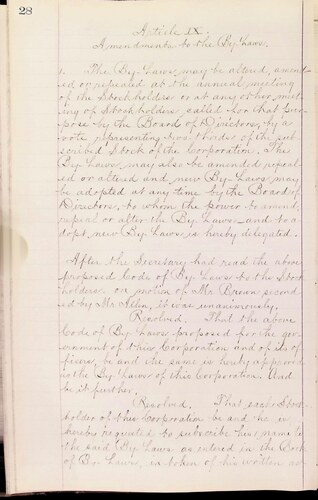 28
Article IX.
Amendments to the By Laws.
1. The By Laws may be altered, amend-
ed or repealed at the annual meeting
of the Stockholders or at any other meet-
ing of Stockholders called for that pur-
pose by the Board of Directors, by a
vote representing two thirds of the sub
scribed Stock of the Corporation. The
By Laws may also be amended repeal-
ed or altered and new By Laws may
be adopted at any time by the Board of
Directors, to whom the power to amend,
repeal or alter the By Laws and to a-
dopt new By Laws is hereby delegated.
After the Secretary had read the above
proposed Code of By Laws to the Stock
holders, on motion of Mr. second
ed by Mr Allen, it was unanimously,
Resolved. That the above
Code of By Laws proposed for the gov-
ernment of this Corporation and of its of
ficers, be and the same is hereby approved
as the By Laws of this Corporation. And
be it further,
Resolved. That each Stock-
holder of this Corporation be and he is
hereby requested to subscribe his name to
the said By Laws as entered in the Book
of By Laws, in token of his written as